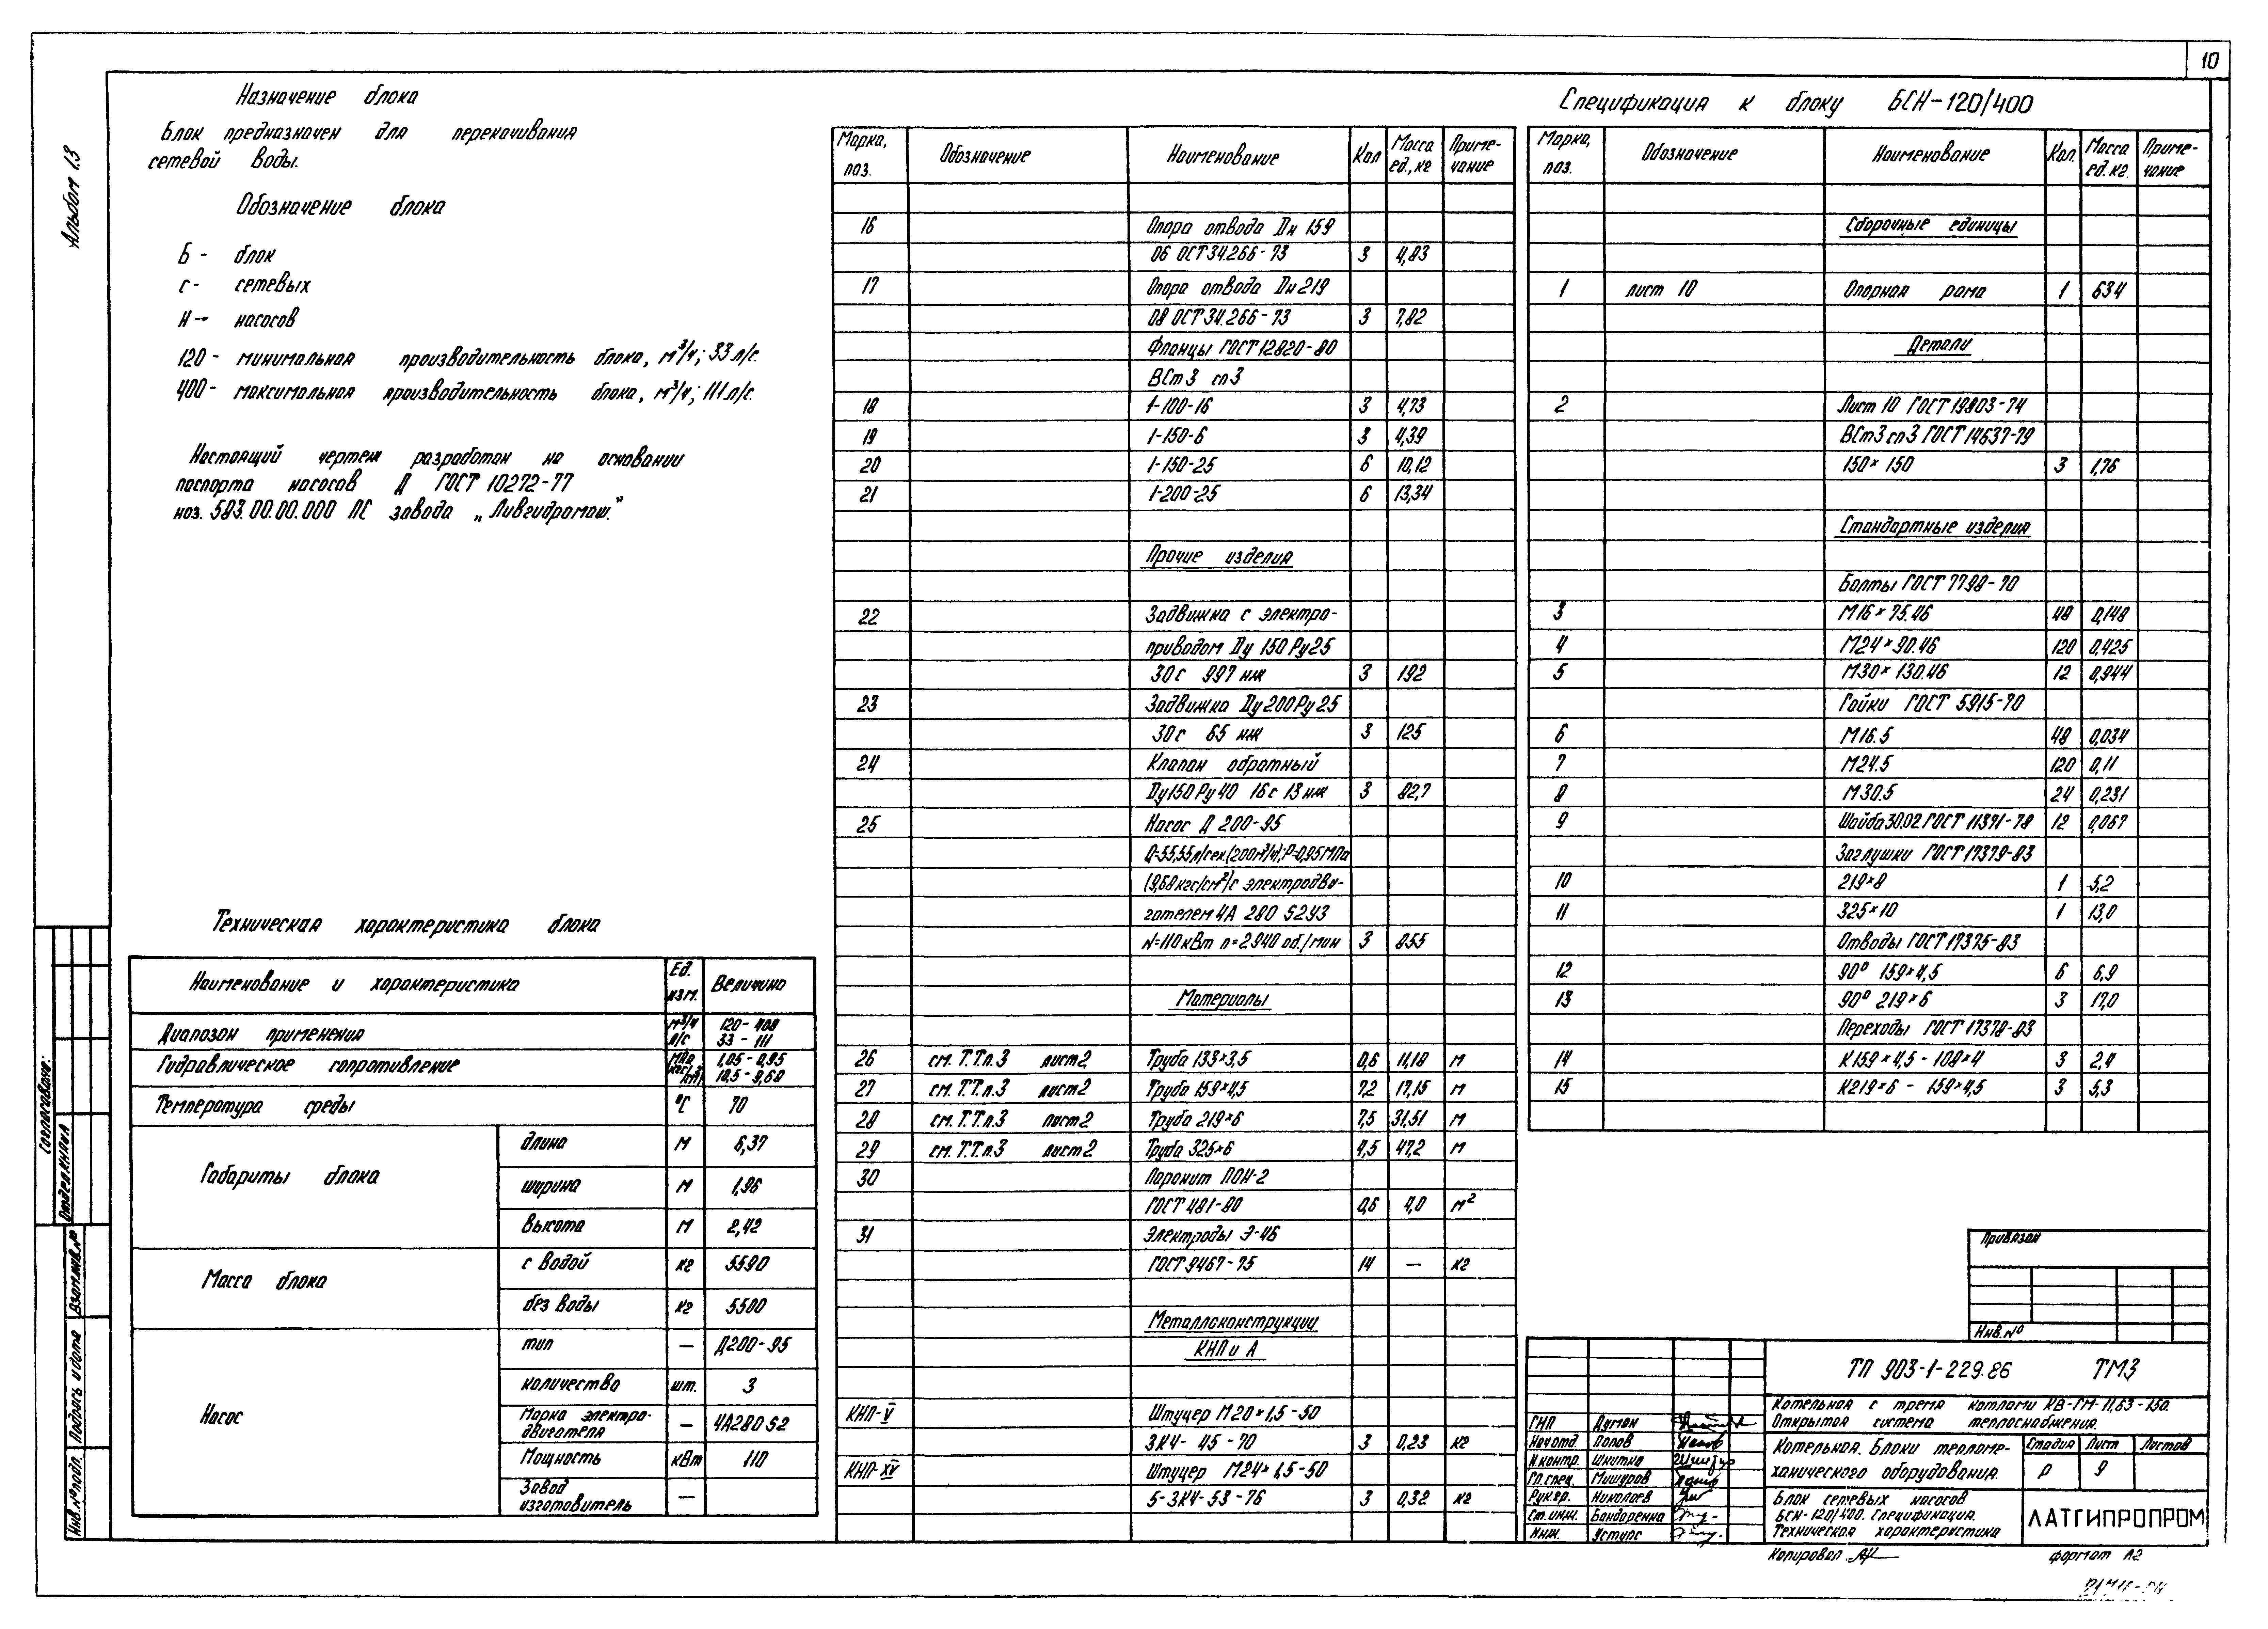 10
Альбом 1.3
Назначение блока
Блок предназначен для перекачивания
сетевой воды.
Обозначение блока
Б - блок
С - сетевых
Н - насосов
120 - минимальная производительность блока, м³/ч; 33 л/с.
400 - максимальная производительность блока, м³/ч; 111 л/с.
Настоящий чертеж разработан на основании
паспорта насосов Д ГОСТ 10272-77
ноз. 583.00.00.000 ПС завода „Ливгидромаш."
Техническая характеристика блока
Наименование и характеристика Ед. изм. Величина
Диапазон применения м³/ч 120 - 400
л/с 33 - 111
Гидравлическое сопротивление МПа 1,05 - 0,95
кгс/см² 10,5 - 9,68
Температура среды °С 70
Габариты блока длина м 6,37
ширина м 1,96
высота м 2,42
Масса блока с водой кг 5590
без воды кг 5500
Насос тип — Д200-95
количество шт. 3
Марка электро-
двигателя — 4А280S2
Мощность кВт 110
Завод
изготовитель —
Марка, поз. Обозначение Наименование Кол Масса ед., кг Приме-
чание
16 Опора отвода Дн 159
06 ОСТ 34.266-73 3 4,83
17 Опора отвода Дн 219
08 ОСТ 34.266-73 3 7,82
Фланцы ГОСТ 12820-80
ВСт 3 сп3
18 1-100-16 3 4,73
19 1-150-6 3 4,39
20 1-150-25 6 10,12
21 1-200-25 6 13,34
Прочие изделия
22 Задвижка с электро-
приводом Ду 150 Ру25
30с 997 нж 3 192
23 Задвижка Ду 200 Ру 25
30с 65 нж 3 125
24 Клапан обратный
Ду150 Ру 40 16с 13 нж 3 82,7
25 Насос Д 200-95
Q=55,55л/сек.(200м³/ч); Р=0,95МПа
(9,68 кгс/см²) с электродви-
гателем 4А 280 S2У3
N=110кВт n=2940 об./мин 3 855
Материалы
26 см. Т.Т.п.3 лист 2 Труба 133×3,5 0,6 11,18 м
27 см. Т.Т.п.3 лист 2 Труба 159×4,5 7,2 17,15 м
28 см. Т.Т.п.3 лист 2 Труба 219×6 7,5 31,51 м
29 см. Т.Т.п.3 лист 2 Труба 325×6 4,5 47,2 м
30 Паронит ПОН-2
ГОСТ 481-80 0,6 4,0 м²
31 Электроды Э-46
ГОСТ 9467-75 14 — кг
Металлоконструкции
КИП и А
КИП-V Штуцер М20×1,5-50
ЗК4-45-70 3 0,23 кг
КИП-XV Штуцер М24×1,5-50
5-ЗК4-53-76 3 0,32 кг
Спецификация к блоку БСН-120/400
Марка, поз. Обозначение Наименование Кол. Масса ед. кг. Приме-
чание
Сборочные единицы
1 лист 10 Опорная рама 1 634
Детали
2 Лист 10 ГОСТ 19803-74
ВСт3 сп3 ГОСТ 14637-79
150×150 3 1,76
Стандартные изделия
Болты ГОСТ 7798-70
3 М16×75.46 48 0,148
4 М24×90.46 120 0,425
5 М30×130.46 12 0,944
Гайки ГОСТ 5915-70
6 М16.5 48 0,034
7 М24.5 120 0,11
8 М30.5 24 0,231
9 Шайба 30.02 ГОСТ 11371-78 12 0,067
Заглушки ГОСТ 17379-83
10 219×8 1 5,2
11 325×10 1 13,0
Отводы ГОСТ 17375-83
12 90° 159×4,5 6 6,9
13 90° 219×6 3 17,0
Переходы ГОСТ 17378-83
14 К159×4,5 - 108×4 3 2,4
15 К219×6 - 159×4,5 3 5,3
Привязан
Инв. №
ТП 903-1-229.86 ТМ3
Котельная с тремя котлами КВ-ГМ-11,63-150.
Открытая система теплоснабжения.
ГИП Думан
Нач.отд. Попов
Н.контр. Шкитка
Гл.спец. Мишуров
Рук.гр. Николаев
Ст.инж. Бондаренко
Инж. Устурс
Котельная. Блоки тепломе-
ханического оборудования.
Стадия Лист Листов
Р 9
Блок сетевых насосов
БСН-120/400. Спецификация.
Техническая характеристика
ЛАТГИПРОПРОМ
Копировал
формат А2
Согласовано:
Отдел КИПиА
Взам.инв.№
Подпись и дата
Инв.№ подл.